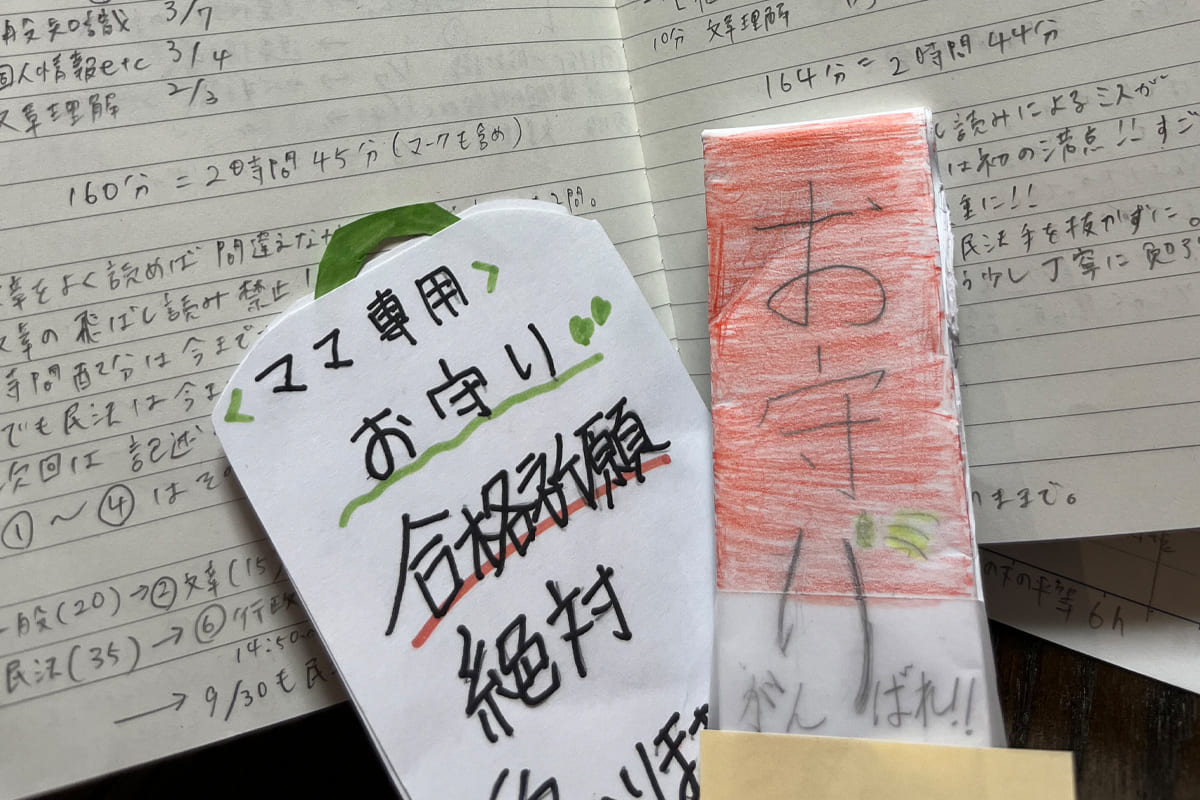 3/7
個人情報etc 3/4
文章理解 2/3
160分 = 2時間45分(マークも含め)
章をよく読めば間違えな
文章の飛ばし読み禁止!
時間配分は今まで
でも民法は今ま
次回は記述
①〜④はそ
般(20)→②文章(15
民法(35)→⑥行政
14:50
→ 9/30も民
10分 文章理解
164分=2時間44分
し読みによるミスが
は初の満点!!すご
重に!!
民法手を抜かずに
う少し丁寧に
ままで。
の下の平等 6h
<ママ専用>
お守り
合格祈願
絶対
お守り
がんばれ!!